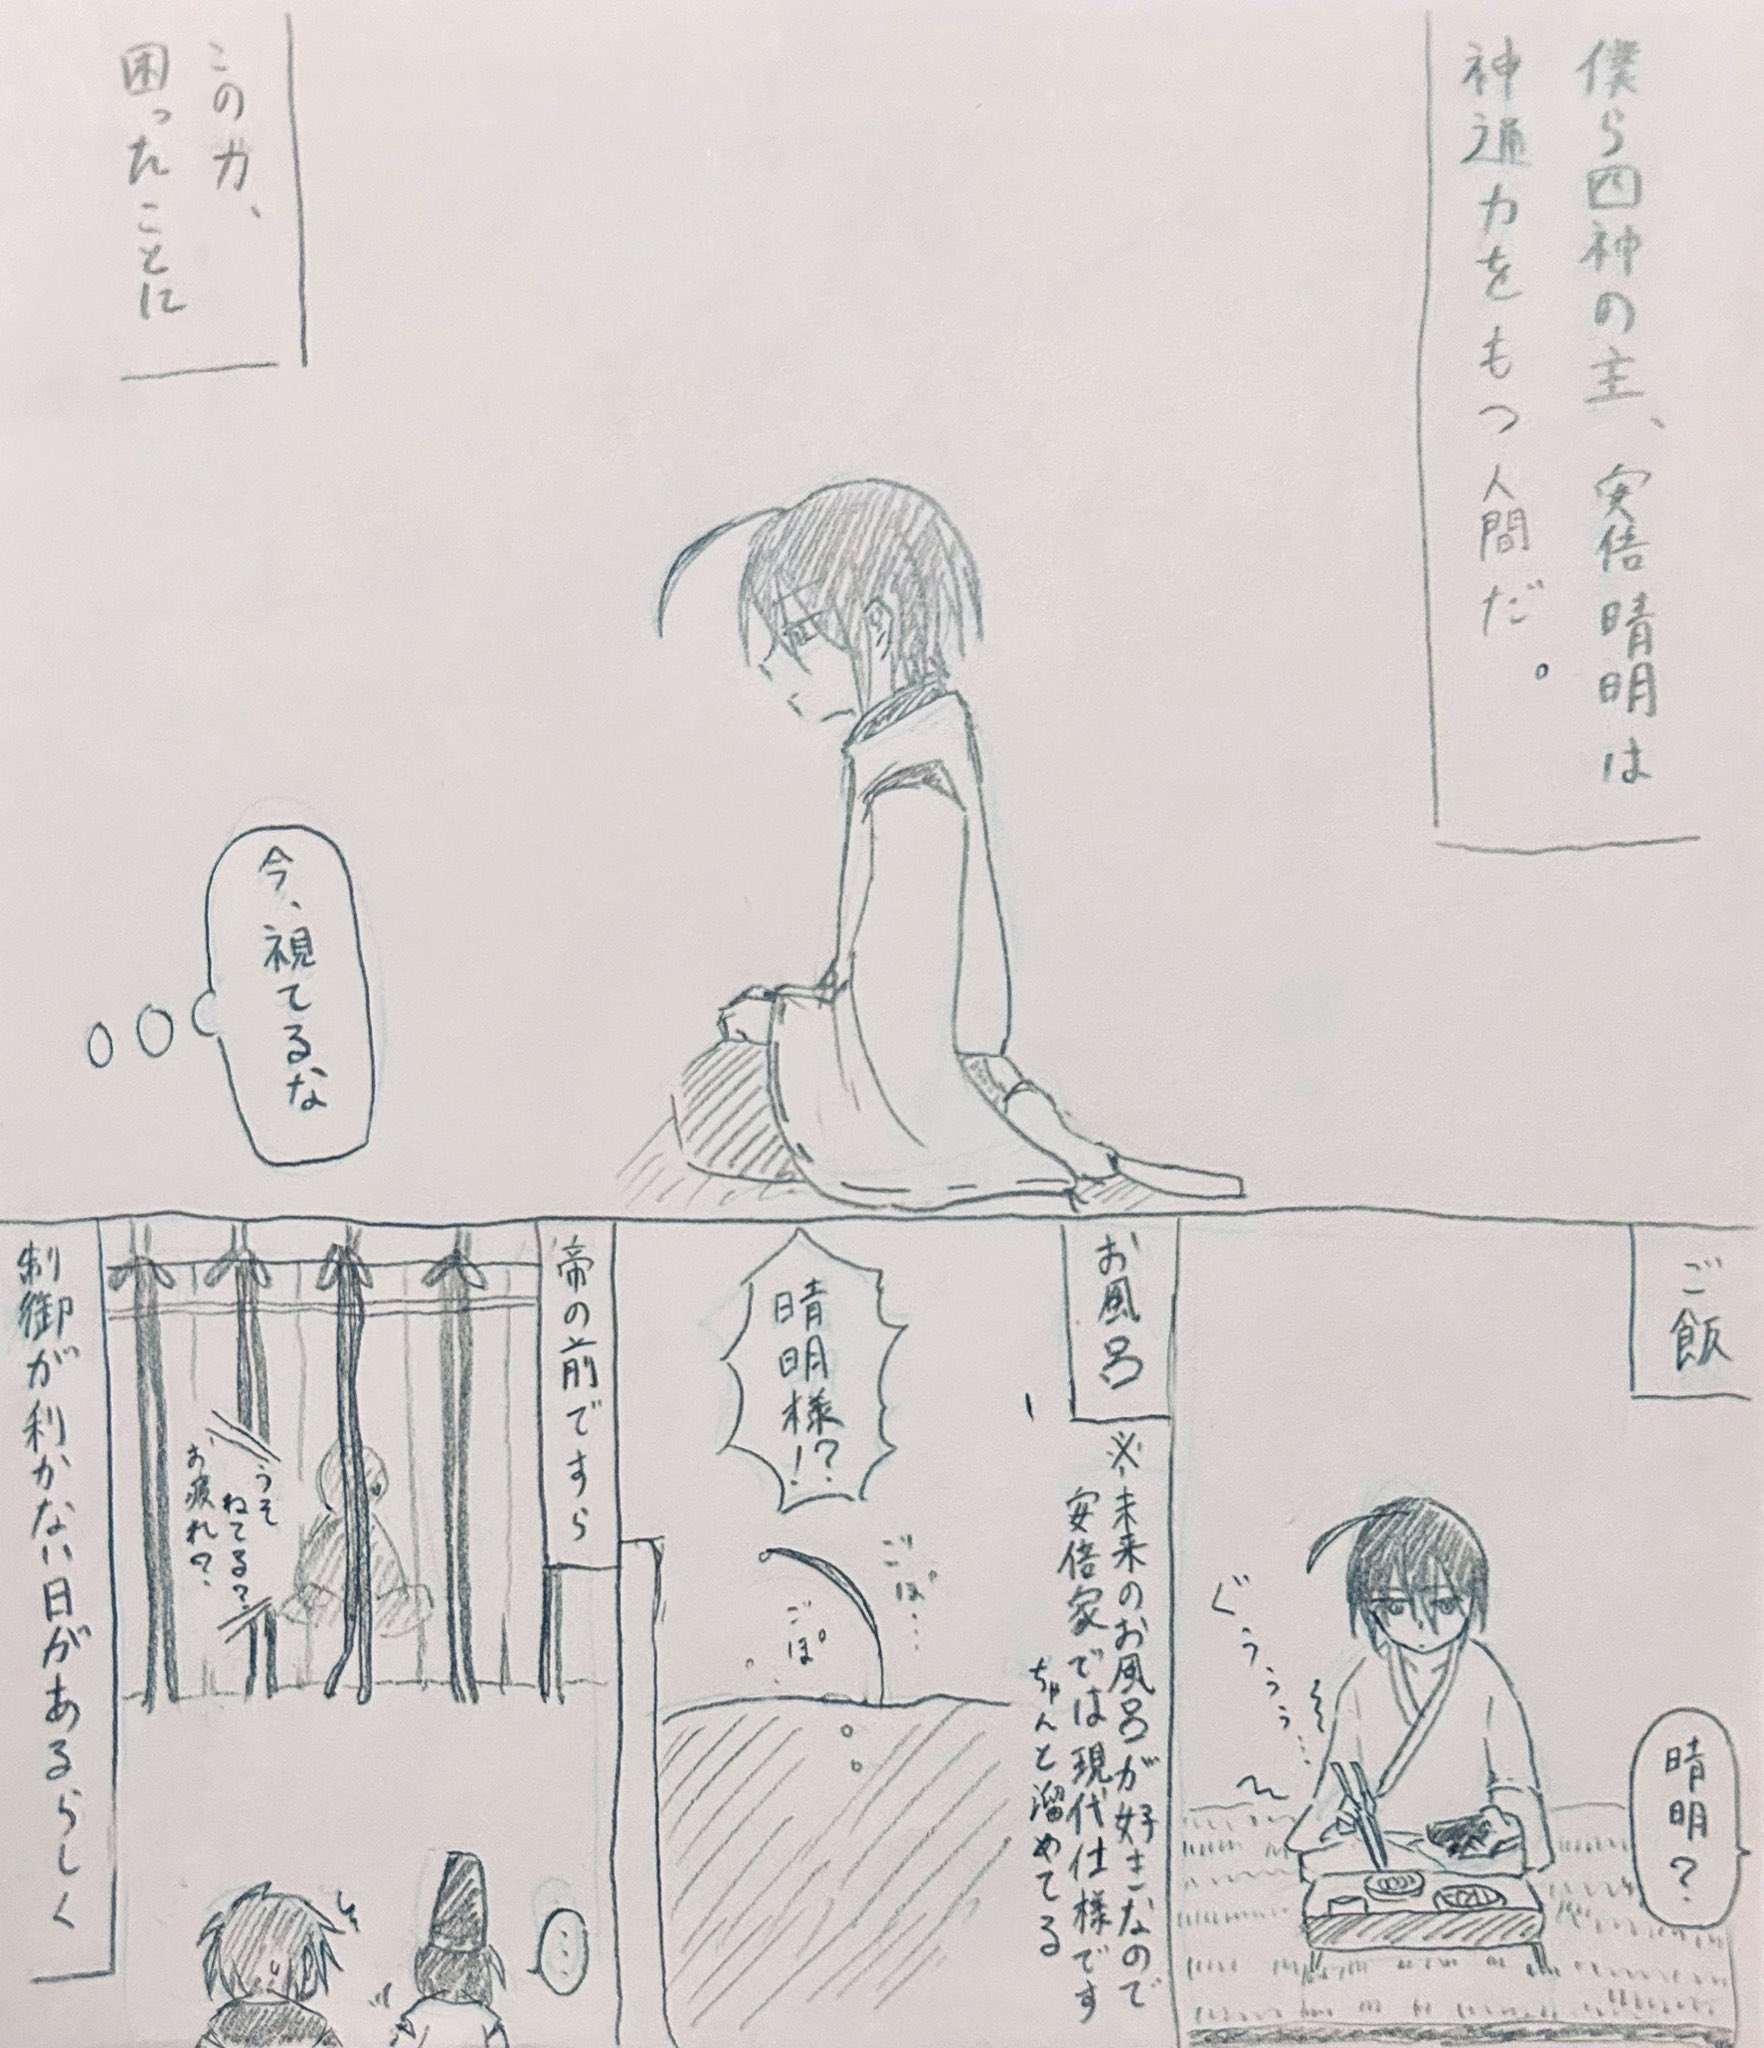 僕ら四神の主、安倍晴明は
神通力をもつ人間だ。
今、視てるな
この力、
困ったことに
ご飯
晴明?
ぐぅぅぅ…
お風呂
※未来のお風呂が好きなので
安倍家では現代仕様です
ちゃんと溜めてる
晴明様!?
ごぽ…
ごぽ
帝の前ですら
うそ
ねてる?
お疲れ?
…
制御が利かない日があるらしく